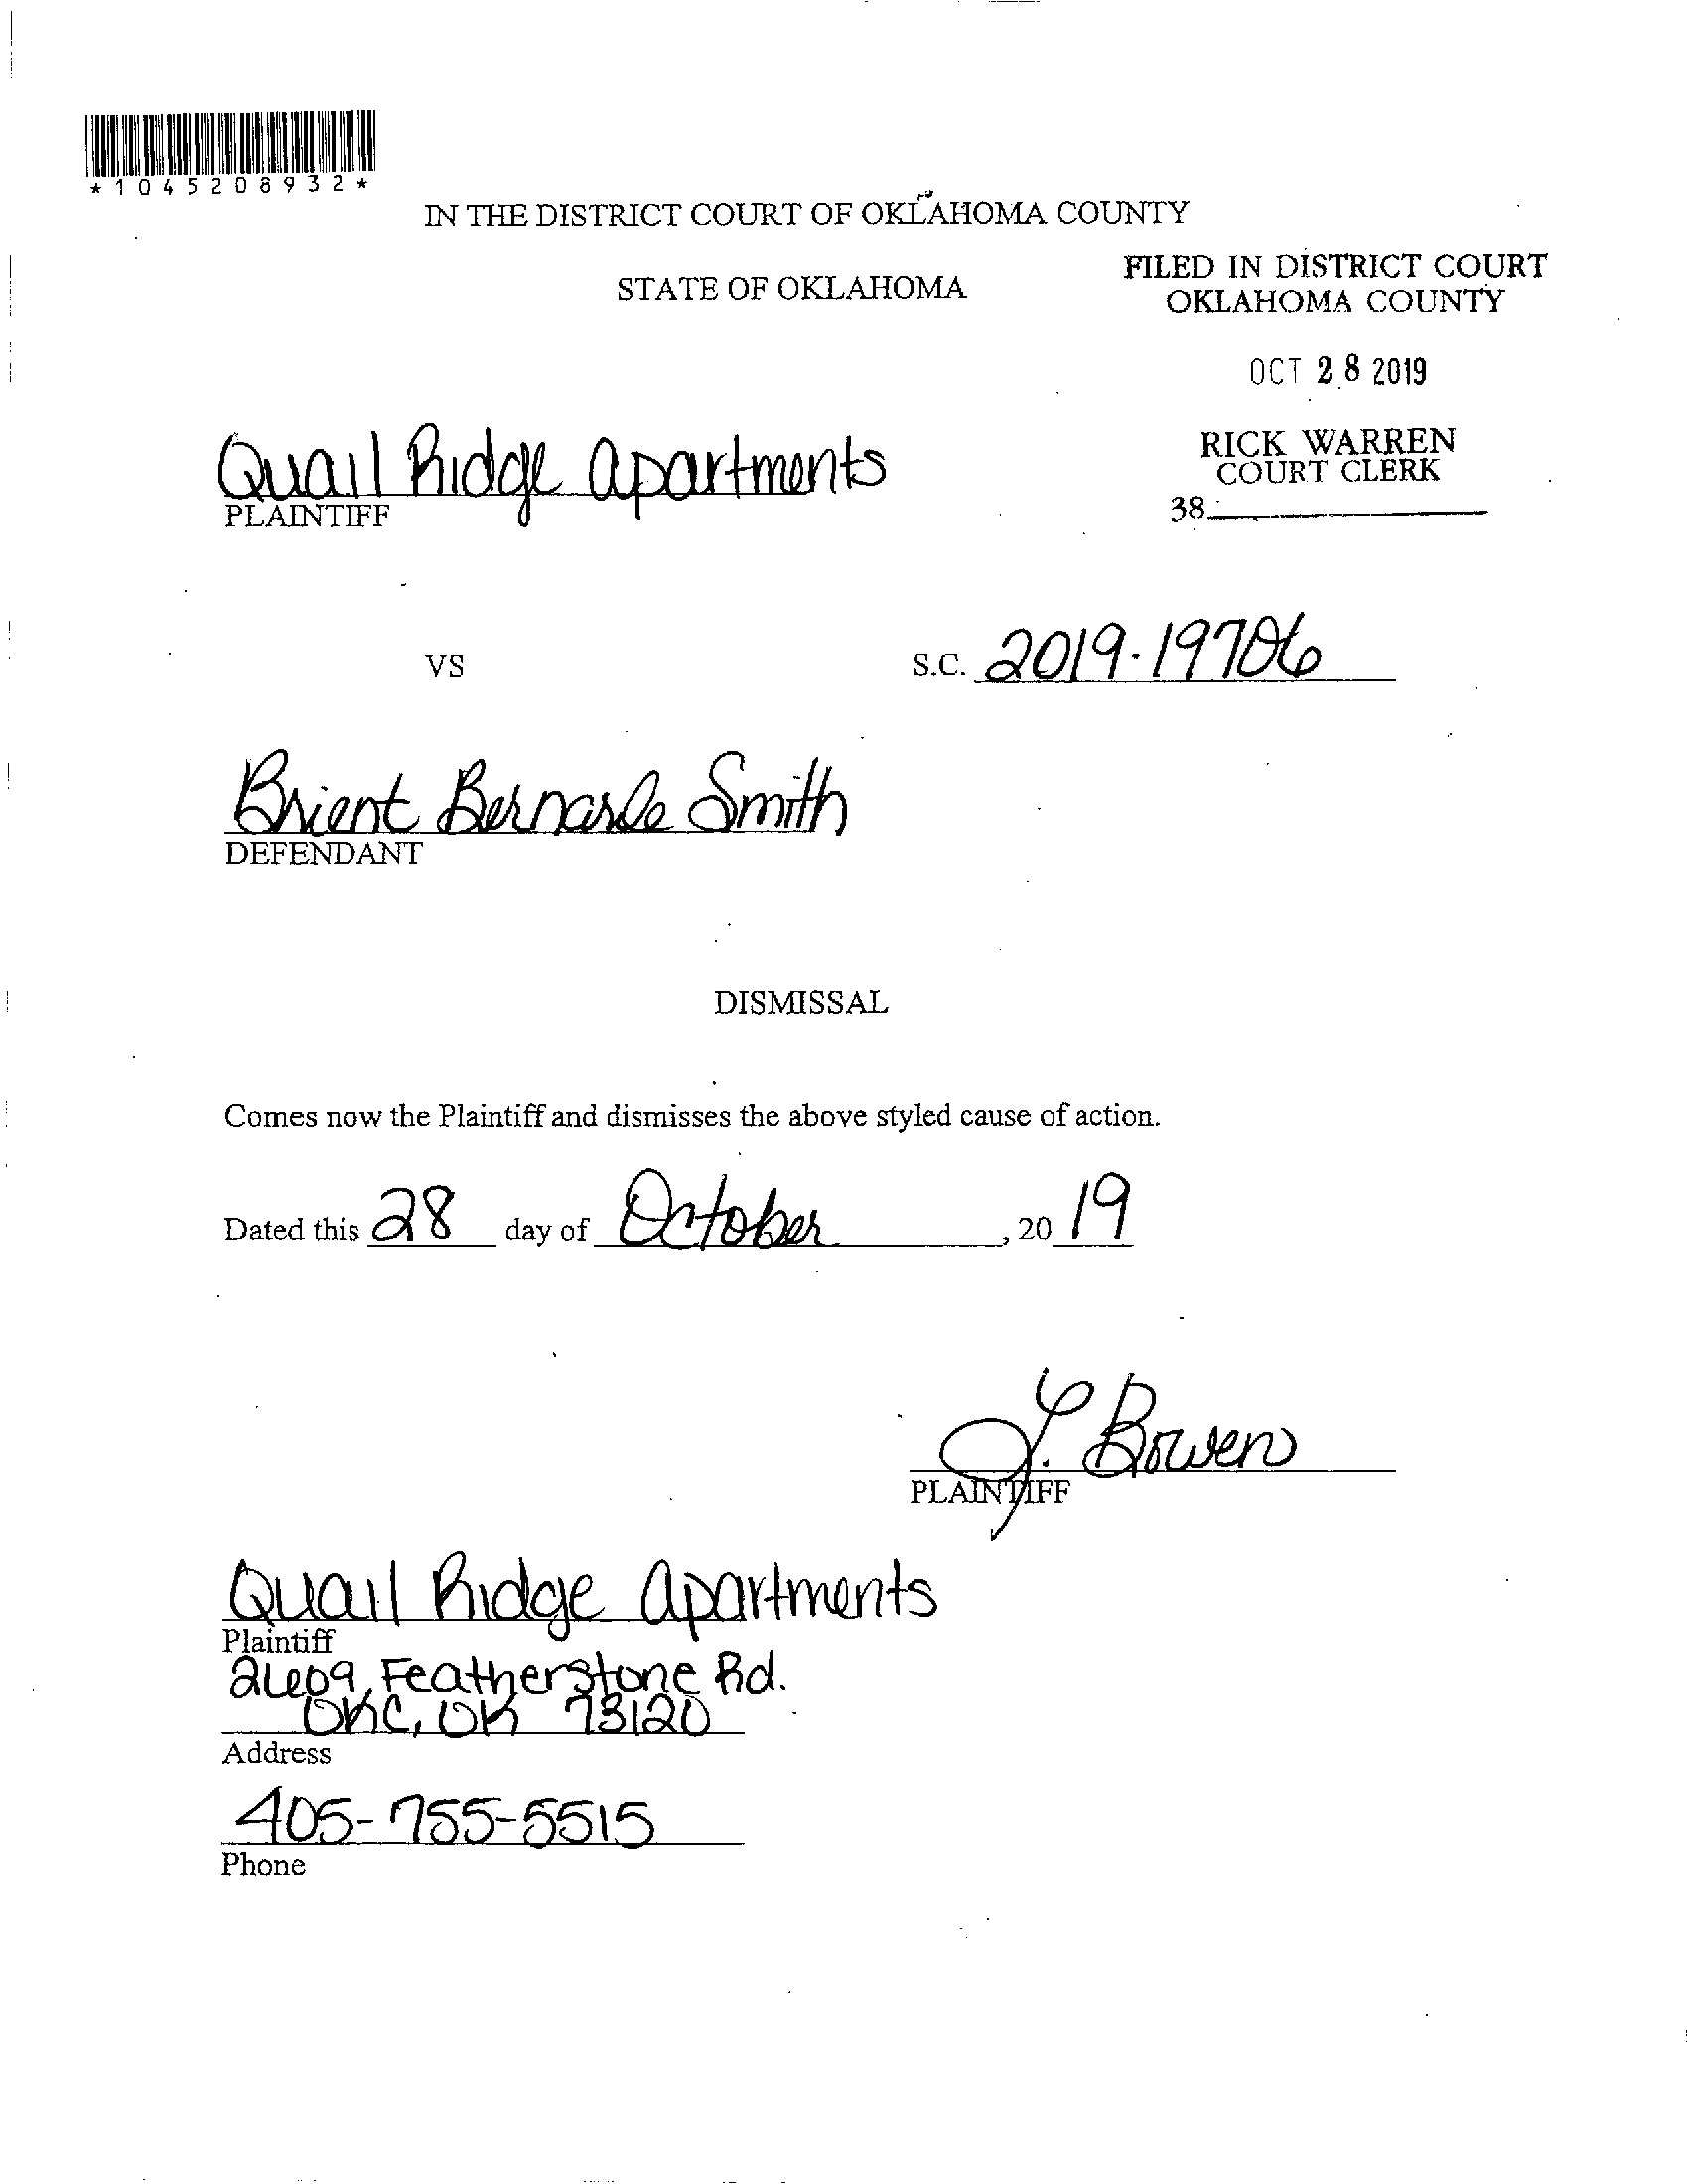 *1045208932*
IN THE DISTRICT COURT OF OKLAHOMA COUNTY
STATE OF OKLAHOMA
FILED IN DISTRICT COURT
OKLAHOMA COUNTY
OCT 28 2019
RICK WARREN
COURT CLERK
38
Quail Ridge Apartments
PLAINTIFF
VS
S.C. 2019-19706
Brient Bernarde Smith
DEFENDANT
DISMISSAL
Comes now the Plaintiff and dismisses the above styled cause of action.
Dated this 28 day of October, 2019
J. Bowen
PLAINTIFF
Quail Ridge Apartments
Plaintiff
2609 Featherstone Rd.
OKC, OK 73120
Address
405-755-5515
Phone